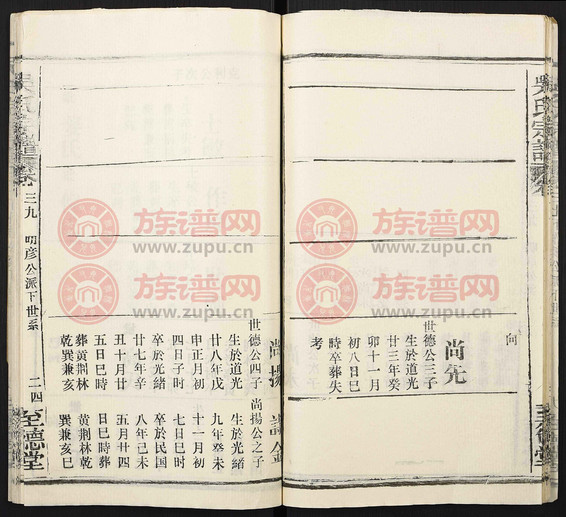 吳氏宗譜
卷
至德堂
向
尚先
世德公三子
生於道光
廿三年癸
卯十一月
初八日巳
時卒葬失
考
尚揚
世德公四子
生於道光
廿八年戊
申正月初
四日子时
卒於光緒
廿七年辛
丑十月廿
五日巳時
葬黄荆林
乾巽兼亥
尚揚公之子
生於光緒
九年癸未
十一月初
七日巳时
卒於民國
八年己未
五月廿四
日巳時葬
黄荆林乾
巽兼亥巳
三九
明彦公派下世系
二四
至德堂
族谱网
www.zupu.cn
族谱网
www.zupu.cn
族谱网
www.zupu.cn
族谱网
www.zupu.cn